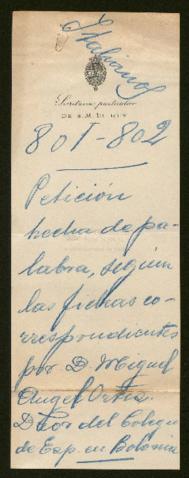 Italianos
Secretaría particular
DE S. M. EL REY
801-802
Petición
hecha de pa-
labra, según
las fichas co-
rrespondientes
por D. Miguel
Angel Ortiz.
Dtor del Colegio
de Esp. en Bolonia